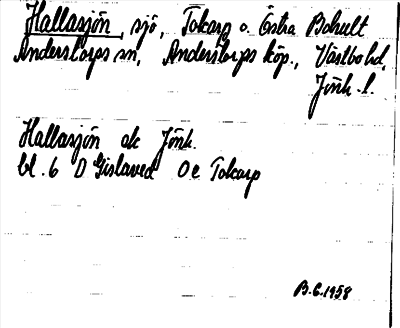 Hallasjön, sjö, Tokarp o. Östra Bohult
Anderstorps sn, Anderstorps köp., Västbo hd,
Jönk. l.
Hallasjön ek Jönk.
bl. 6 D Gislaved Oe Tokarp
B.G.1958